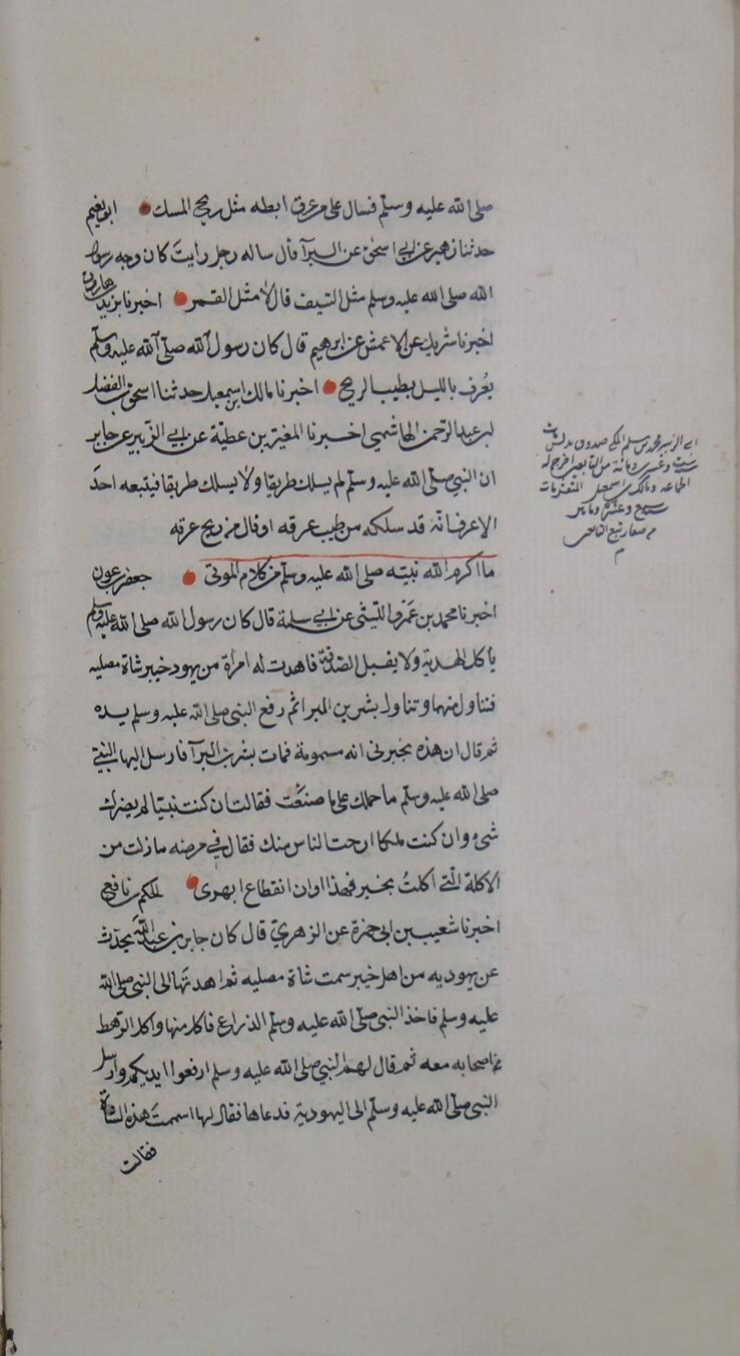 صلى الله عليه وسلم فسال على من عرق ابطه مثل ريح المسك ابو نعيم
حدثنا زهير عن ابي اسحق عن البرآ قال ساله رجل رايت كان وجه رسول
الله صلى الله عليه وسلم مثل السيف قال لا مثل القمر اخبرنا يزيد بن هارون
اخبرنا شريك عن الاعمش عن ابرهيم قال كان رسول الله صلى الله عليه وسلم
يعرف بالليل بطيب الريح اخبرنا مالك بن اسمعيل حدثنا اسحق بن الفضل
بن عبد الرحمن الهاشمي اخبرنا المغيرة بن عطية عن ابي الزبير عن جابر
ان النبي صلى الله عليه وسلم لم يسلك طريقا ولا يسلك طريقا فيتبعه احد
الا عرف انه قد سلكه من طيب عرقه او قال من ريح عرقه
ما اكرم الله نبيه صلى الله عليه وسلم من كلام الموتى جعفر بن عون
اخبرنا محمد بن عمرو الليثي عن ابي سلمة قال كان رسول الله صلى الله عليه وسلم
يأكل الهدية ولا يقبل الصدقة فاهدت له امرأة من يهود خيبر شاة مصليه
فتناول منها وتناول بشر بن البرا ثم رفع النبي صلى الله عليه وسلم يده
ثم قال ان هذه تخبرني انه مسمومة فمات بشر بن البرآ فارسل اليها النبي
صلى الله عليه وسلم ما حملك على ما صنعت فقالت ان كنت نبيا لم يضرك
شئ وان كنت ملكا ارحت الناس منك فقال في مرضه ما زلت من
الاكلة التي اكلت بخيبر فهذا اوان انقطاع ابهرى الحكم بن نافع
اخبرنا شعيب بن ابي حمزة عن الزهري قال كان جابر بن عبد الله يحدث
عن يهوديه من اهل خيبر سمت شاة مصليه ثم اهدتها الى النبي صلى الله
عليه وسلم فاخذ النبي صلى الله عليه وسلم الذراع فاكل منها واكل الرهط
من اصحابه معه ثم قال لهم النبي صلى الله عليه وسلم ارفعوا ايديكم وارسل
النبي صلى الله عليه وسلم الى اليهودية فدعاها فقال لها اسممت هذه الشاة
فقالت
ابي الزبير محمد بن مسلم المكي صدوق مدلس مات
سنة وعشرين ومائة من التابعين اخرج له
الجماعه ومالك بن اسمعيل مات
سبع وعشرة ومائتين